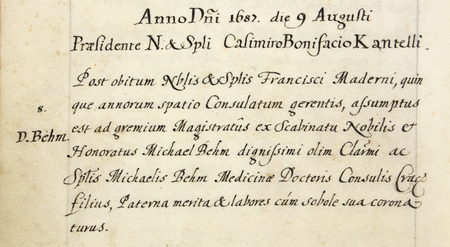 Anno Dñi 1687. die 9 Augusti
Præsidente N. & Spli Casimiro Bonifacio Kantelli.
Post obitum Nblis & Splis Francisci Maderni, quin
que annorum spatio Consulatum gerentis, assumptus
8.
D. Behm.
est ad gremium Magistratûs ex Scabinatu Nobilis &
Honoratus Michael Behm dignissimi olim Clarmi ac
Splis Michaelis Behm Medicinæ Doctoris Consulis Crac
filius, Paterna merita & labores cúm sobole sua corona-
turus.